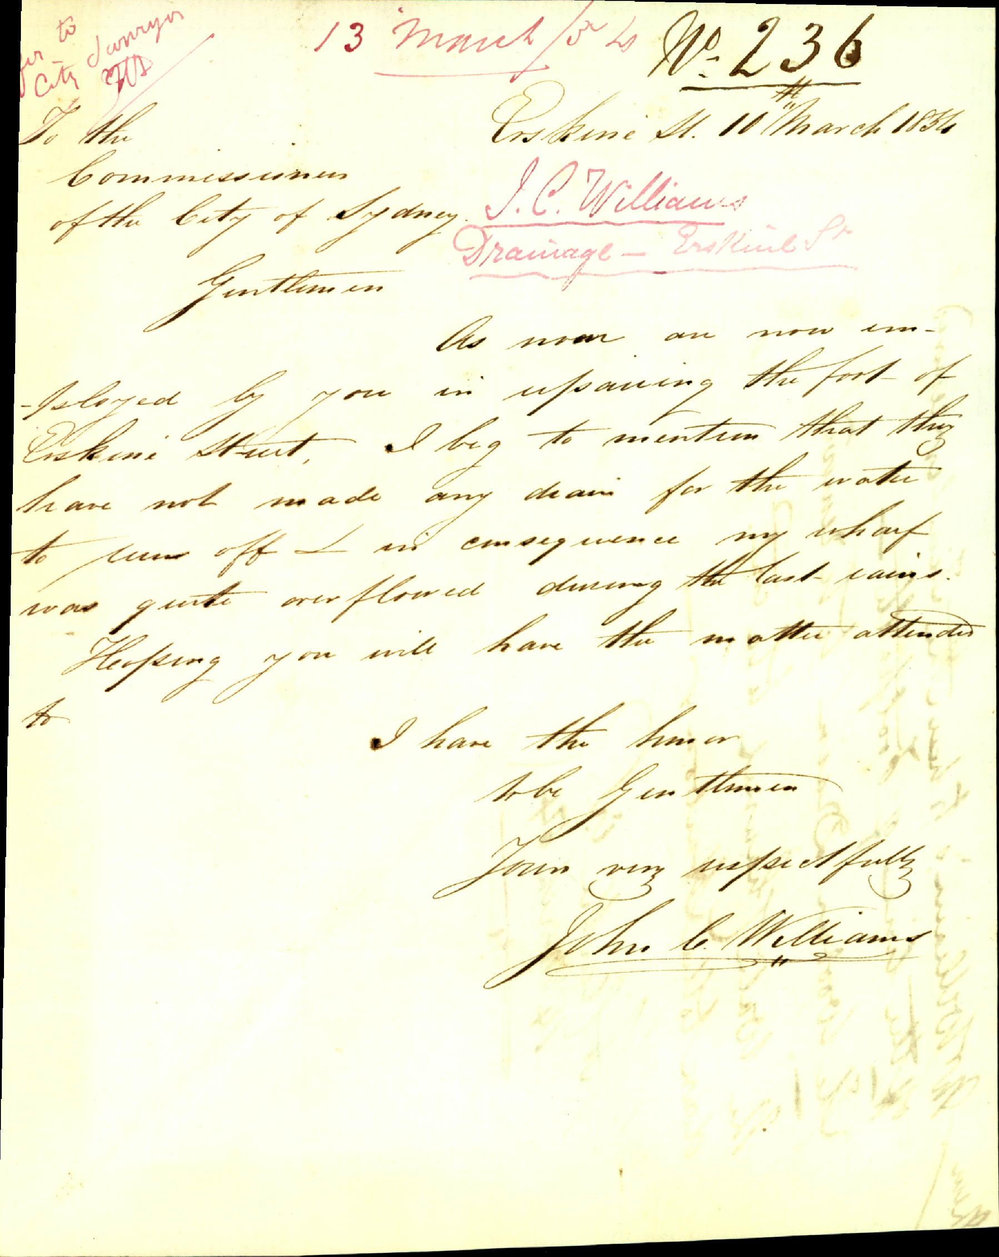 13 March /54
No. 236
to
City Surveyor
Erskine St. 10 March 1854
To the
Commissioners
of the City of Sydney.
J. C. Williams
Drainage – Erskine St
Gentlemen
As men are now em-
-ployed by you in repairing the foot of
Erskine Street, I beg to mention that they
have not made any drain for the water
to run off & in consequence my wharf
was quite overflowed during the last rains.
Hoping you will have the matter attended
to
I have the honor
to be Gentlemen
Your very respectfully
John C. Williams